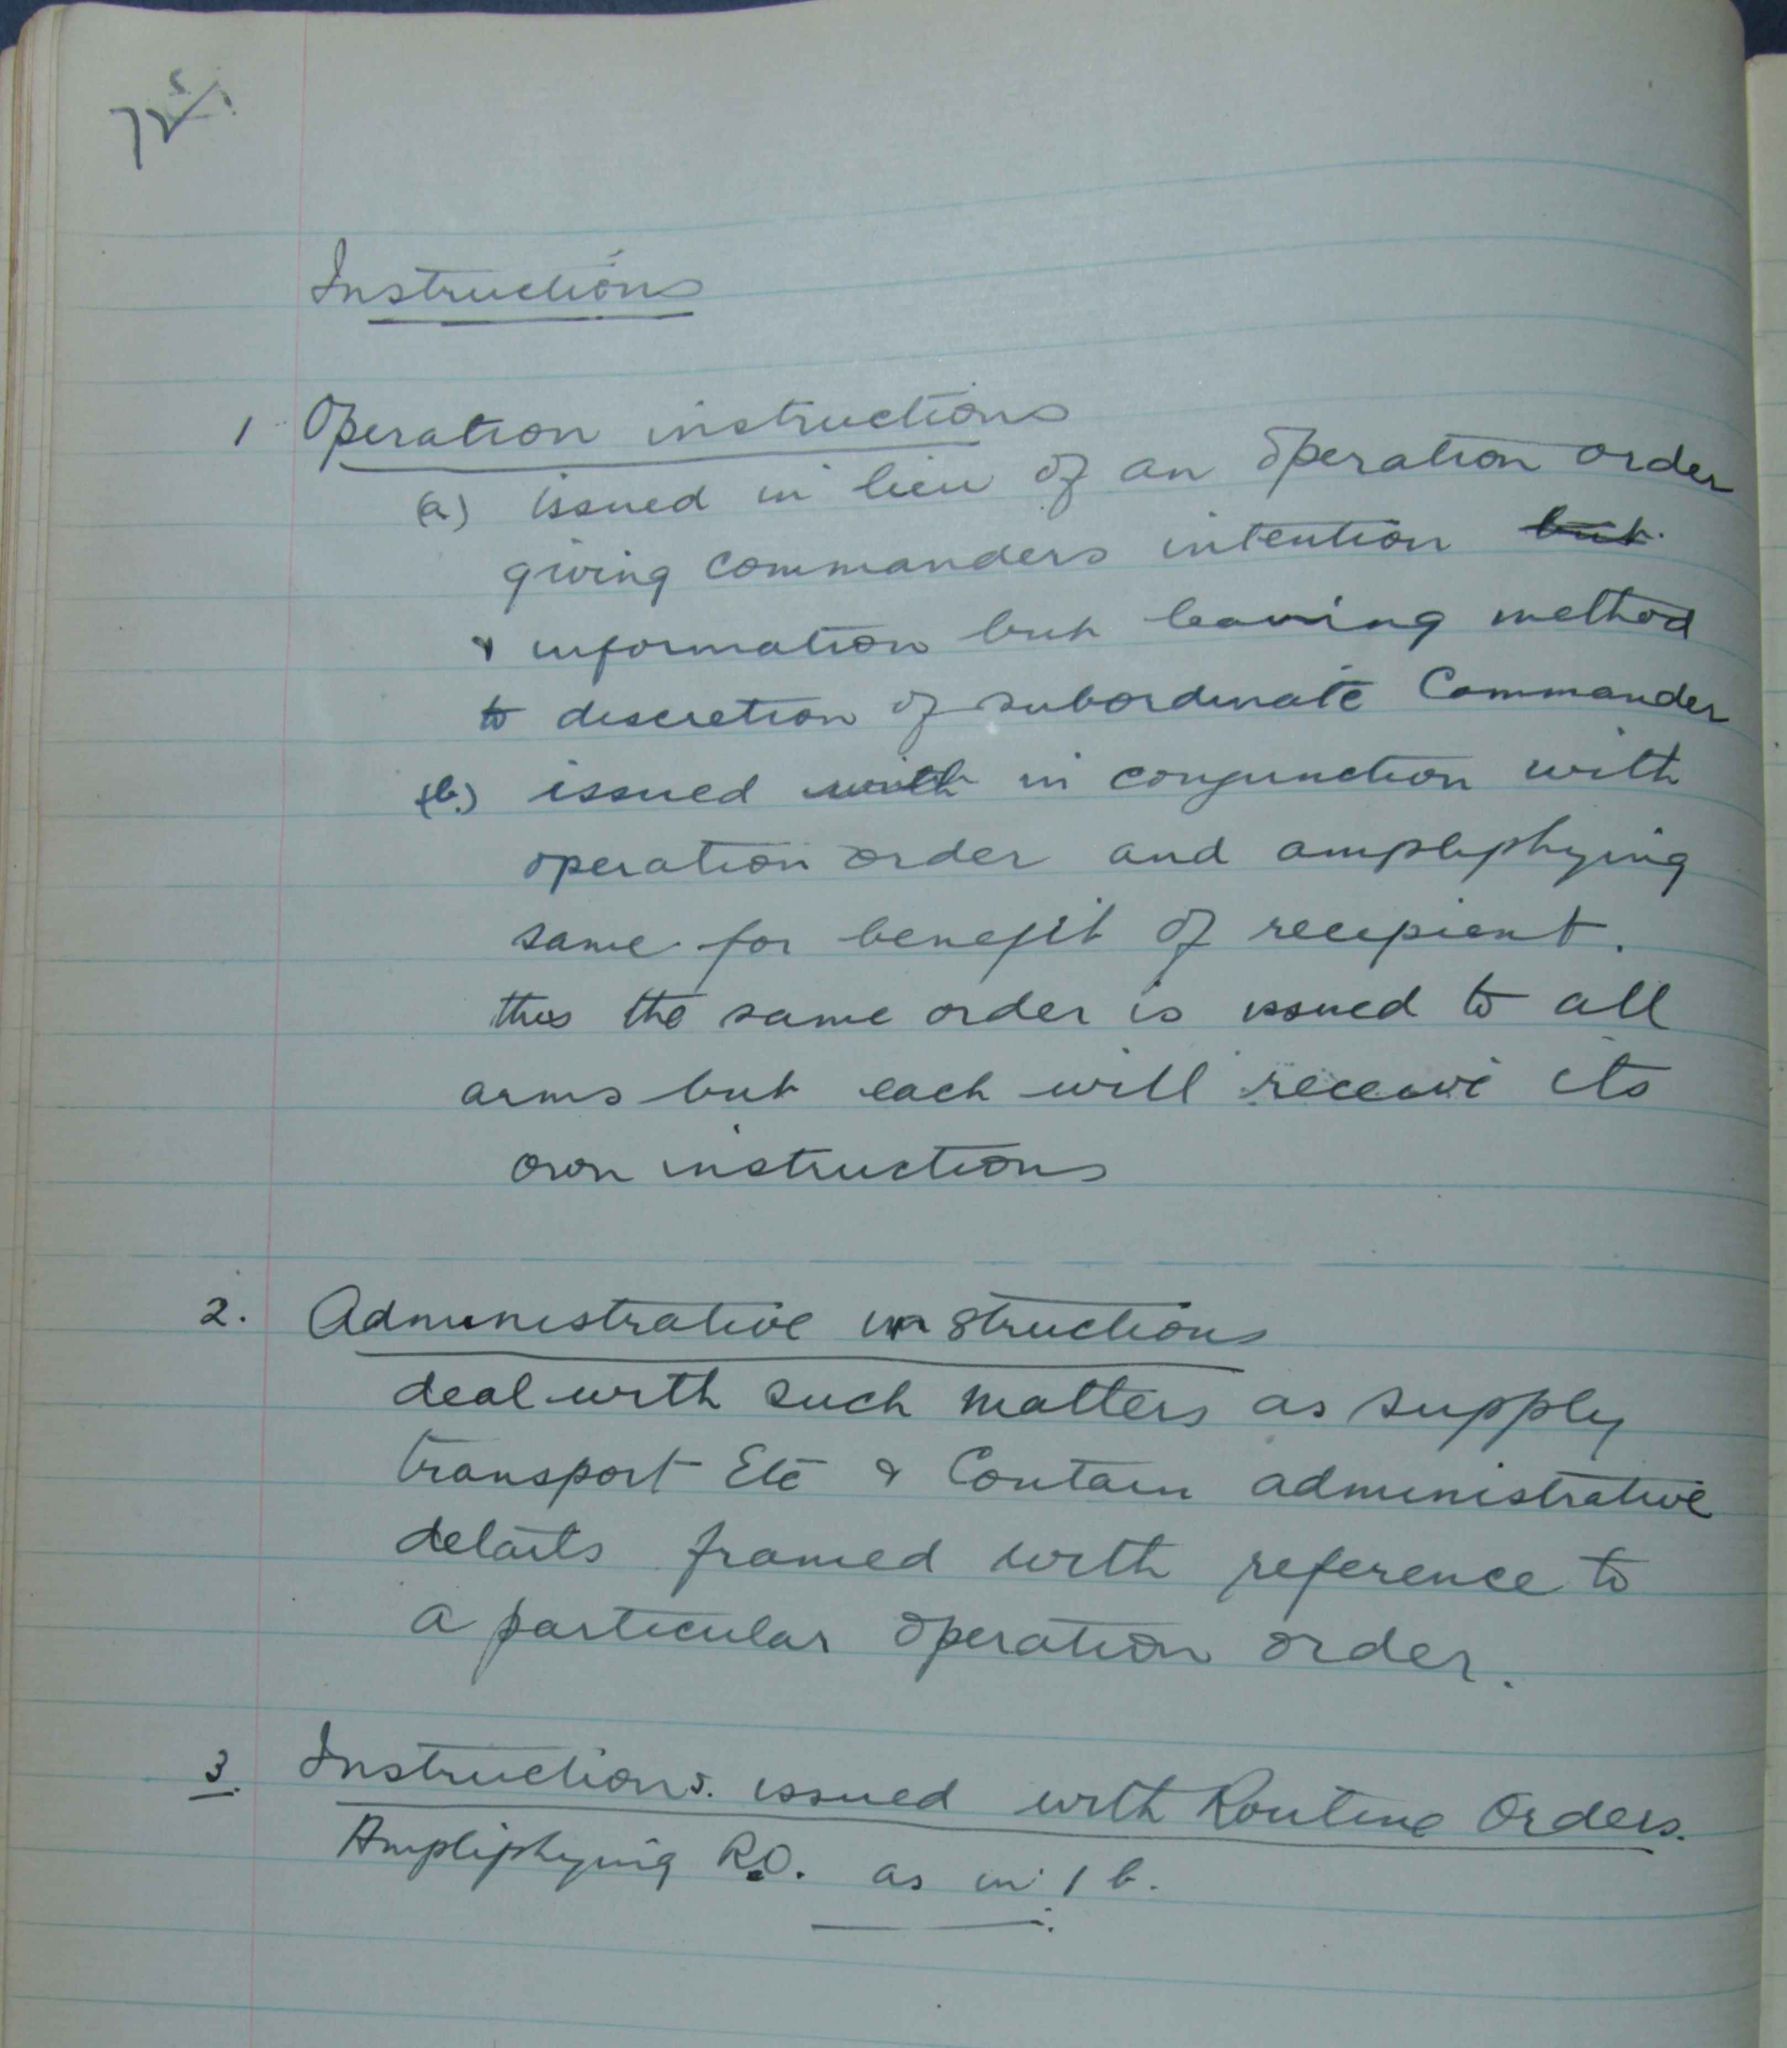 Instructions
1 Operation instructions
(a) issued in lieu of an operation order
giving commanders intention but
& information but leaving method
to discretion of subordinate Commander
(b.) issued with in conjunction with
operation order and ampliphying
same for benefit of recipient.
thus the same order is issued to all
arms but each will receive its
own instructions
2. Administrative instructions
deal with such matters as supply
transport Etc & Contain administrative
details framed with reference to
a particular operation order.
3. Instructions. issued with Routine Orders.
Ampliphying R.O. as in 1 b.